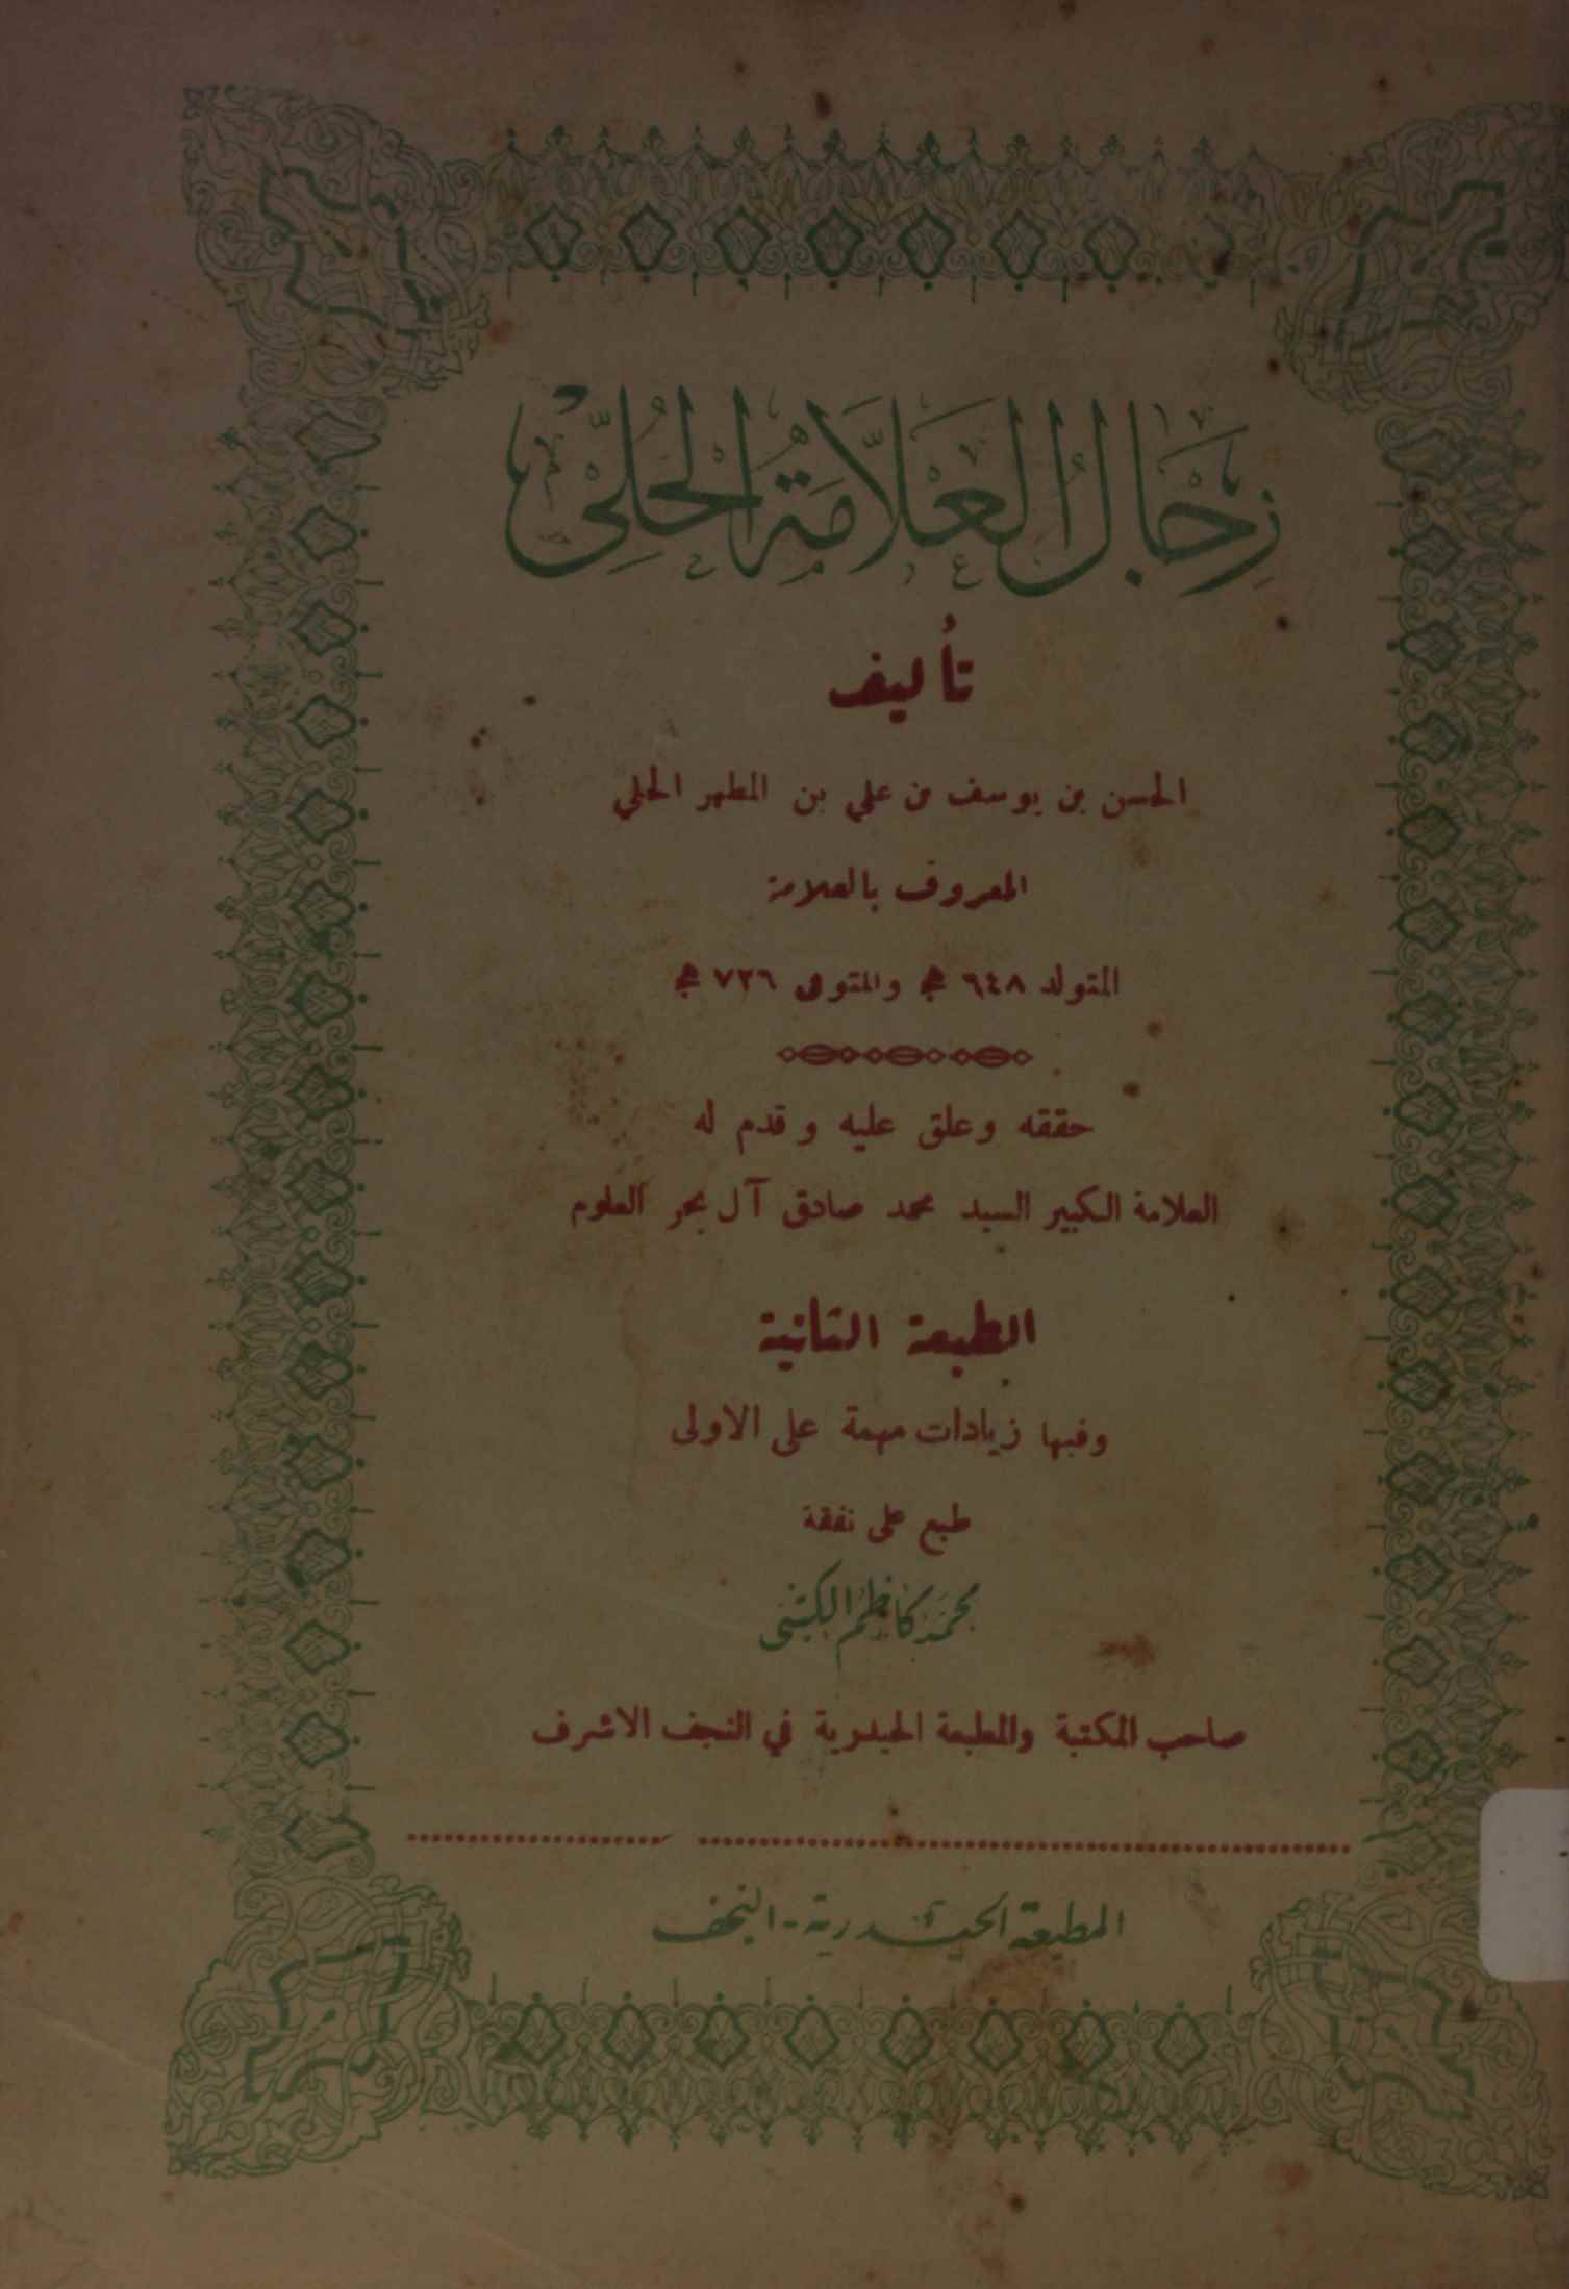 رجال العلامة الحلي
تأليف
الحسن بن يوسف بن علي بن المطهر الحلي
المعروف بالعلامة
المتولد ٦٤٨ هج والمتوفى ٧٢٦ هج
حققه وعلق عليه وقدم له
العلامة الكبير السيد محمد صادق آل بحر العلوم
الطبعة الثانية
وفيها زيادات مهمة على الاولى
طبع على نفقة
محمد كاظم الكتبي
صاحب المكتبة والمطبعة الحيدرية في النجف الاشرف
المطبعة الحيدرية - النجف